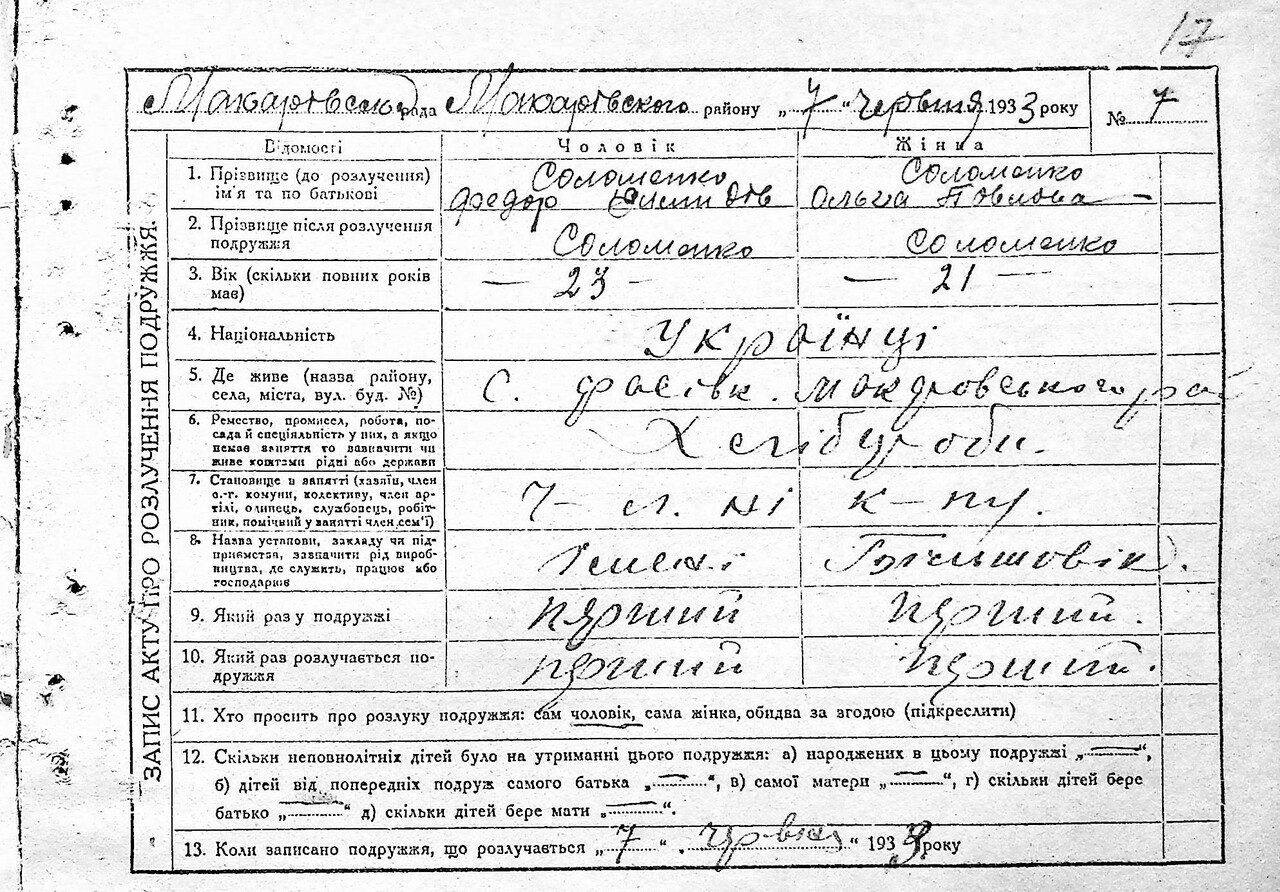 17
Макарівська рада Макарівського району „7“ червня 1933 року № 7
ЗАПИС АКТУ ПРО РОЗЛУЧЕННЯ ПОДРУЖЖЯ.
Відомості Чоловік Жінка
1. Прізвище (до розлучення) Соломенко Соломенко
ім'я та по батькові Федор Ольга Павлова —
2. Прізвище після розлучення
подружжя Соломенко Соломенко
3. Вік (скільки повних років — 23 — — 21 —
має)
4. Національність Українці
5. Де живе (назва району,
села, міста, вул. буд. №) С. Фасівк. Макаровського
6. Ремество, промисел, робота, по-
сада й спеціяльність у них, а якщо
немає заняття то зазначити чи
живе коштами рідні або держави
7. Становище в занятті (хазяїн, член
с.-г. комуни, колективу, член ар-
тілі, одинець, службовець, робіт-
ник, помічний у занятті член сем'ї)
8. Назва установи, закладу чи під-
приємства, зазначити рід вироб-
ництва, де служить, працює або Імені Більшовік.
господарює
9. Який раз у подружжі перший перший.
10. Який раз розлучається по-
дружжя перший перший.
11. Хто просить про розлуку подружжя: сам чоловік, сама жінка, обидва за згодою (підкреслити)
12. Скільки неповнолітніх дітей було на утриманні цього подружжя: а) народжених в цьому подружжі „—“,
б) дітей від попередніх подруж самого батька „—“, в) самої матери „—“, г) скільки дітей бере
батько „—“ д) скільки дітей бере мати „—“.
13. Коли записано подружжя, що розлучається „7“ червня 1933 року